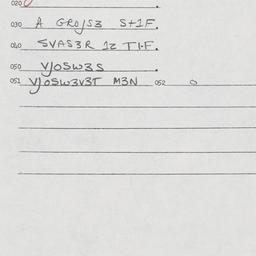 020
030 A GROJS3 S+1F.
040 SVAS3R 12 T1-F.
050 VJOSW3S
051 VJOSW3V3T M3N 052 O